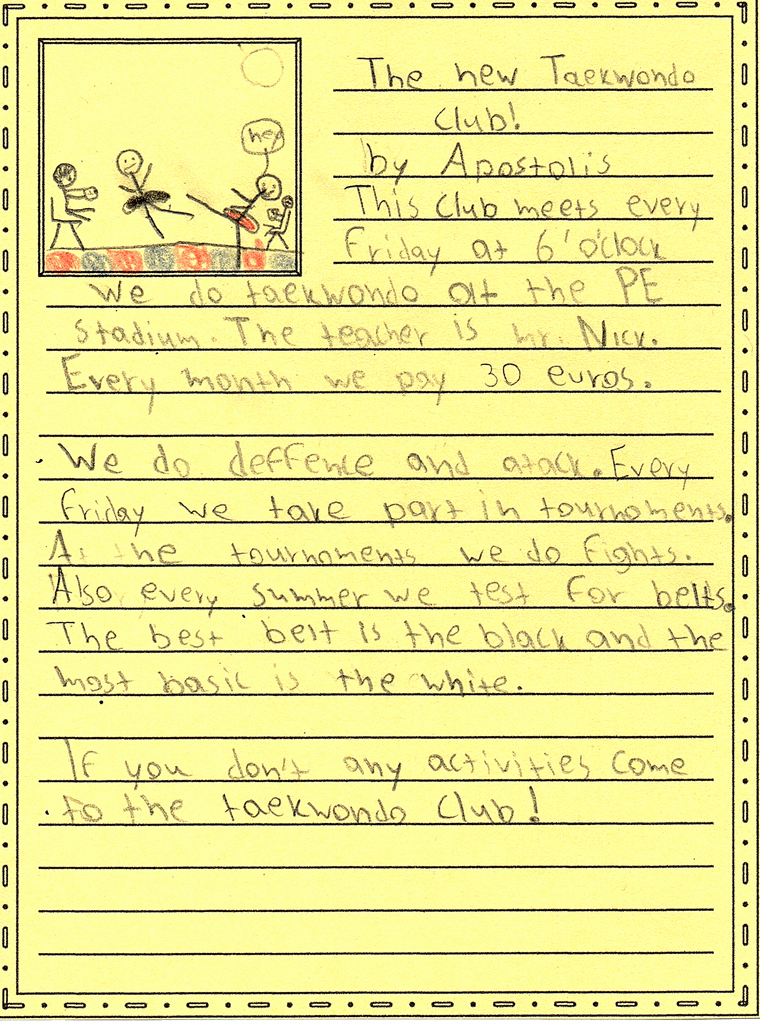 The new Taekwondo
Club!
by Apostolis
hey
This Club meets every
Friday at 6'o'clock
We do taekwondo at the PE
stadium. The teacher is mr. Nick.
Every month we pay 30 euros.
We do deffence and atack. Every
friday we take part in tournoments.
At the tournoments we do fights.
Also every summer we test for belts.
The best belt is the black and the
most basic is the white.
If you don't any activities come
to the taekwondo Club!